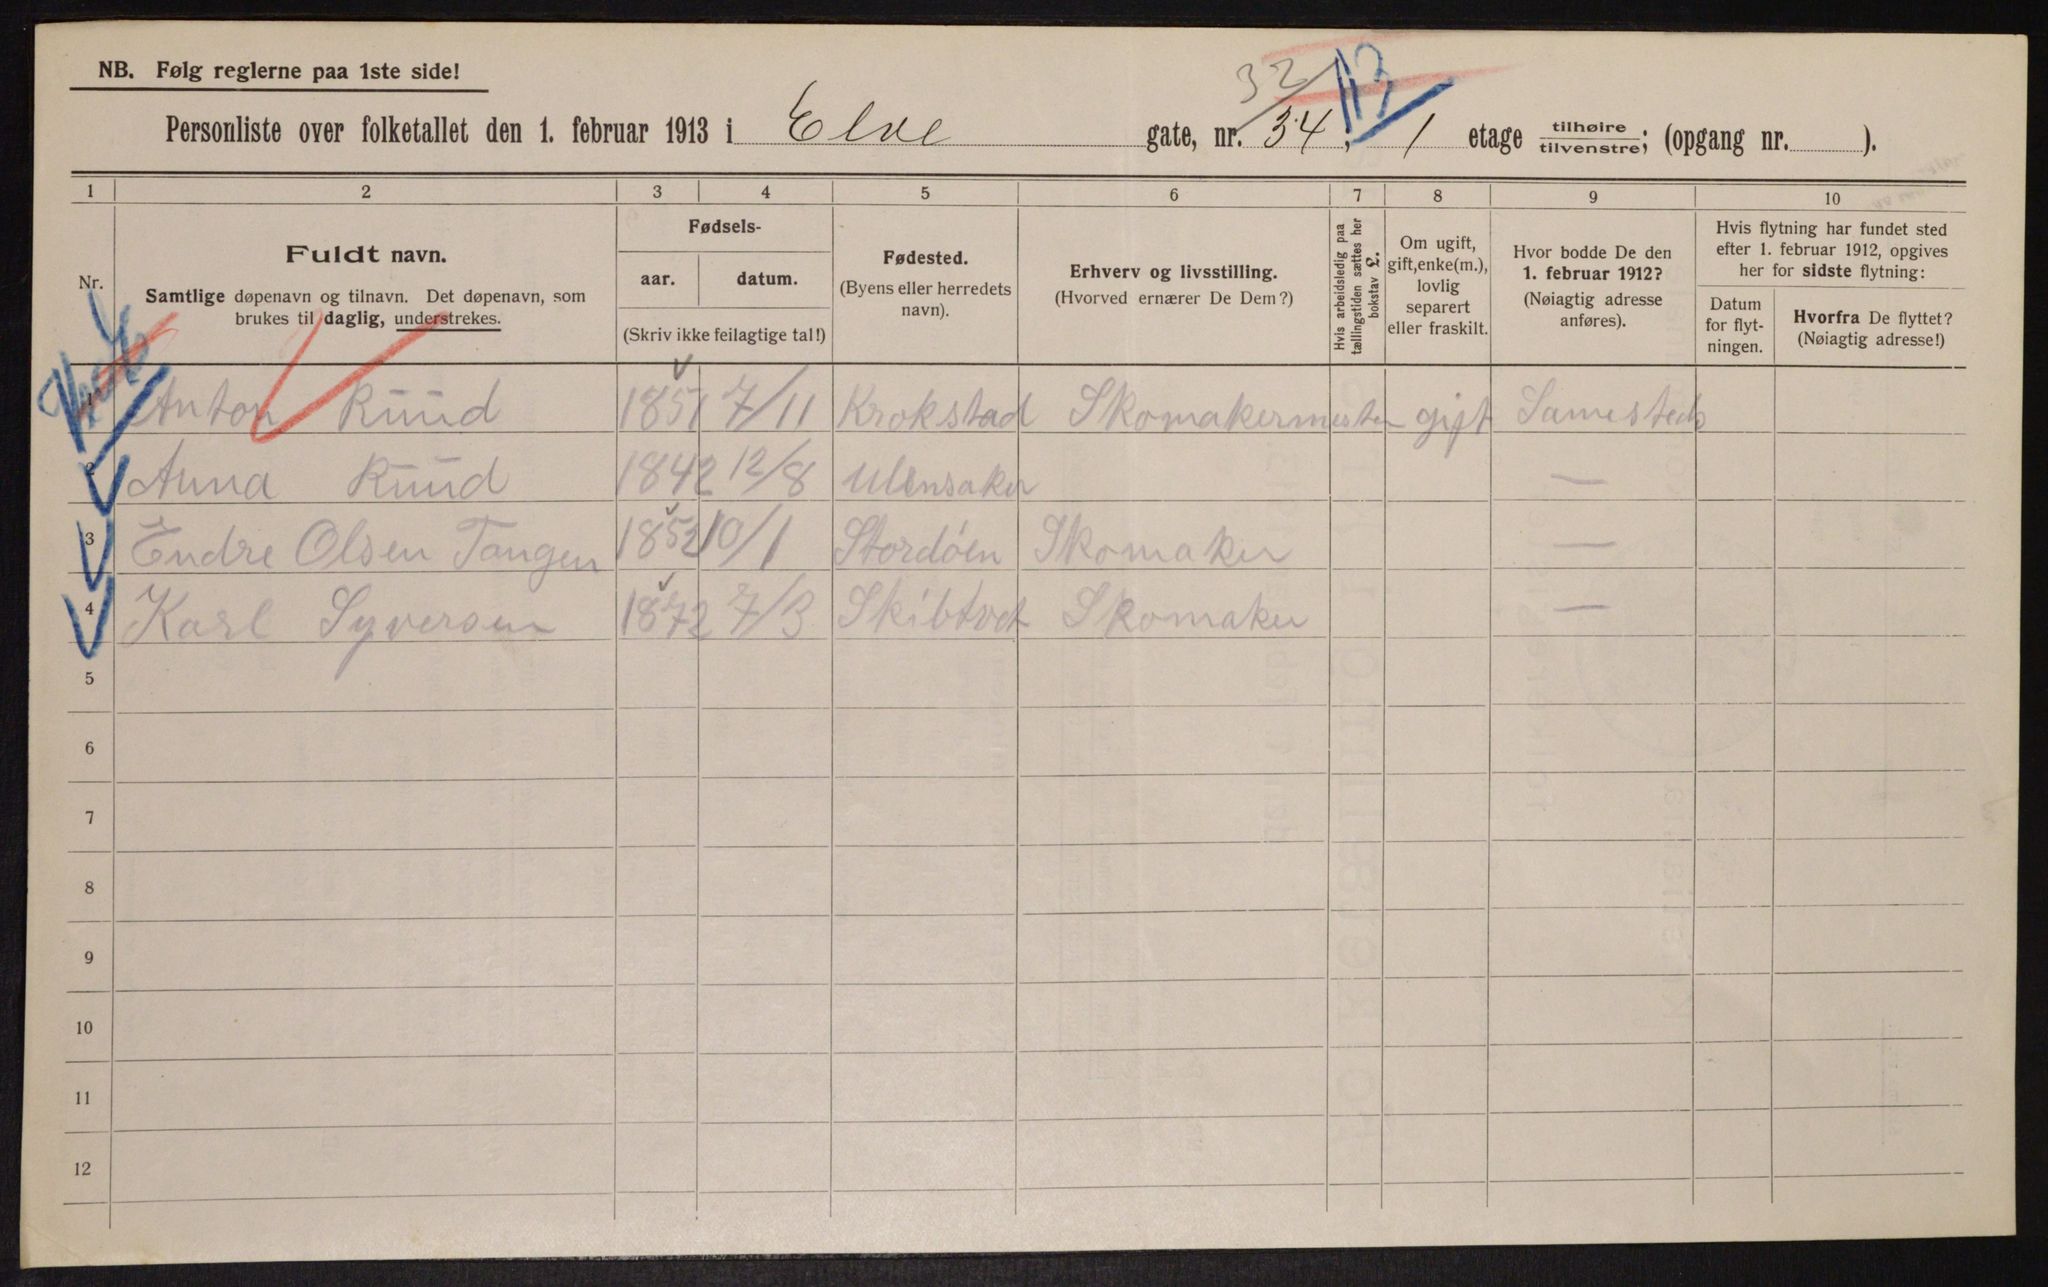 NB. Følg reglerne paa 1ste side!
Personliste over folketallet den 1. februar 1913 i Elve gate, nr. 34, 1 etage tilhøire tilvenstre; (opgang nr. ).
32 113
1 2 3 4 5 6 7 8 9 10
Nr.
Fuldt navn.
Samtlige døpenavn og tilnavn. Det døpenavn, som
brukes til daglig, understrekes.
Fødsels-
aar. datum.
(Skriv ikke feilagtige tal!)
Fødested.
(Byens eller herredets
navn).
Erhverv og livsstilling.
(Hvorved ernærer De Dem?)
Hvis arbeidsledig paa
tællingstiden sættes her
bokstav L.
Om ugift,
gift, enke(m.),
lovlig
separert
eller fraskilt.
Hvor bodde De den
1. februar 1912?
(Nøiagtig adresse
anføres).
Hvis flytning har fundet sted
efter 1. februar 1912, opgives
her for sidste flytning:
Datum
for flyt-
ningen.
Hvorfra De flyttet?
(Nøiagtig adresse!)
1 Anton Ruud 1851 7/11 Krokstad Skomakermester gift Samesteds
2 Anna Ruud 1842 12/8 Ulensaker —
3 Endre Olsen Tangen 1852 10/1 Stordøen Skomaker —
4 Karl Syversen 1872 7/3 Skibtvet Skomaker —
5
6
7
8
9
10
11
12